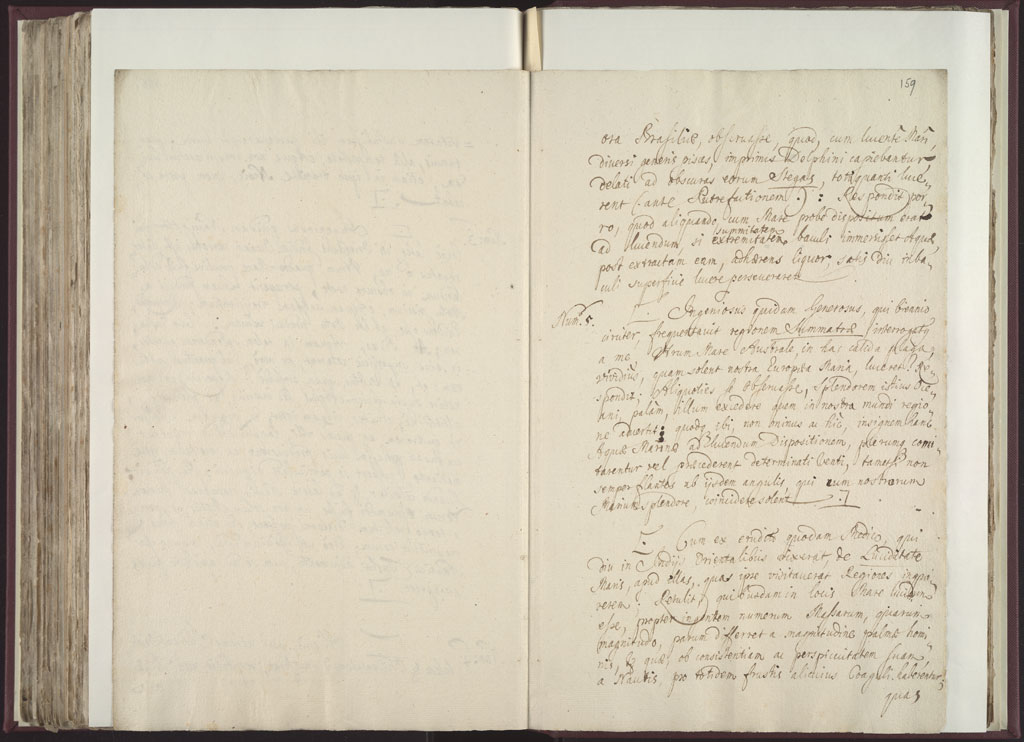 159
ora Brasiliæ, observasse, quod, cum lucente Mari,
diversi generis pisces, imprimis Delphini capiebantur,
delati ad obscuras eorum Stegas, tota quanti luce-
rent (ante Putrefactionem.): Respondit por-
ro, quod aliquando, cum Mare probe dispositum erat
ad lucendum, si summitatem extremitatem baculi immersisset Aquæ,
post extractam eam, adhærens liquor, satis diu in ba-
culi superficie lucere perseveraret.
Num. 5. [ Ingeniosus quidam Generosus, qui biennio
circiter, frequentavit regionem Summatræ, interrogatus
a me, Utrum Mare Australe, in hac calida plaga,
vividius, quam solent nostra Europæa Maria, luceret? Re-
spondit; Aliquoties se Observasse, splendorem istius Oce-
ani, palam, illum excedere quem in nostra mundi regio-
ne advertit: quodque ibi, non minus ac hic, insignem hanc
Aquæ Marinæ ad lucendum Dispositionem, plerumque comi-
tarentur vel præcederent determinati Venti, tametsi non
semper flantes ab ijsdem angulis, qui cum nostrorum
Marium splendore, coincidere solent. ]
[ Cum ex erudito quodam Medico, qui
diu in Indijs Orientalibus vixerat, de Luciditate
Maris, apud illas, quas ipse visitaverat Regiones inqui-
rerem; Retulit, quibusdam in locis Mare lucidum
esse, propter ingentem numerum Massarum, quarum
magnitudo, parum differret a magnitudine palmæ homi-
nis, & quæ, ob consistentiam ac perspicuitatem suam
a Nautis, pro totidem frustis alicuius Coaguli haberentur;
quas